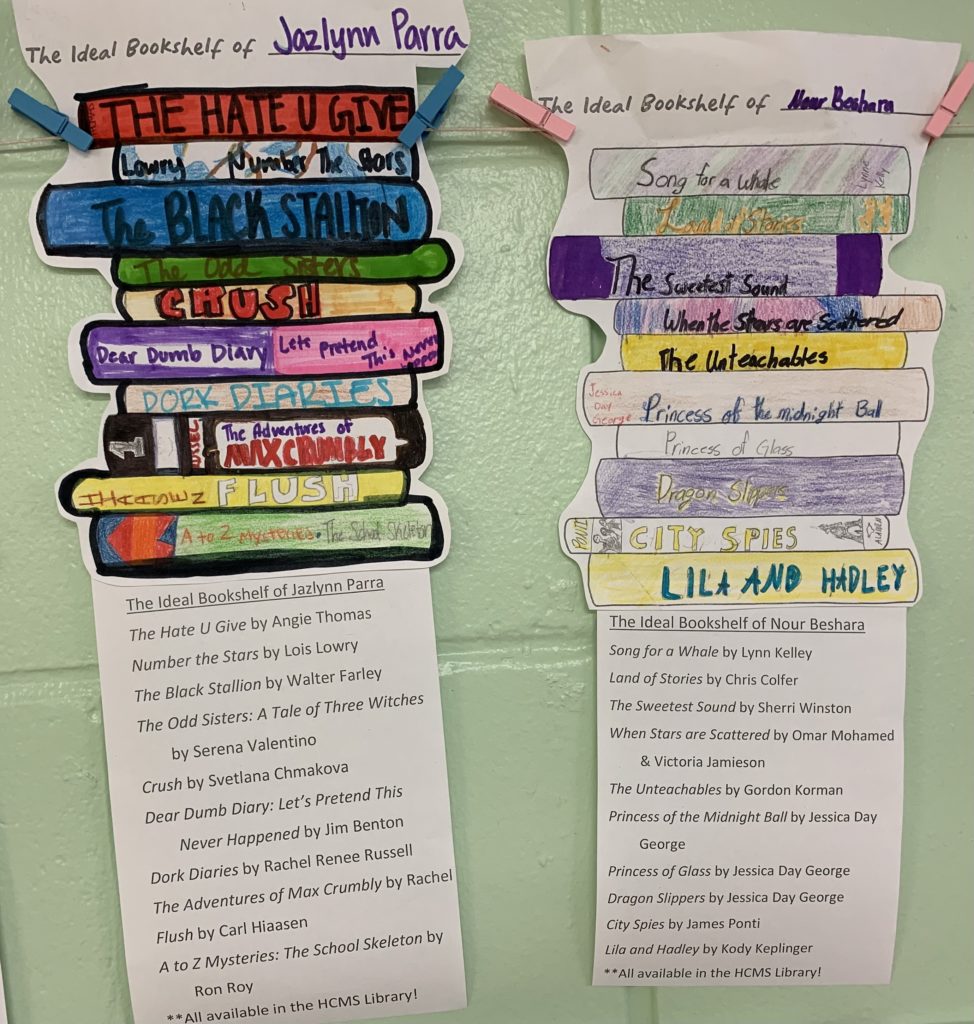 The Ideal Bookshelf of Jazlynn Parra
THE HATE U GIVE
Lowry Number The Stars
The BLACK STALLION
The Odd Sisters
CRUSH
Dear Dumb Diary Lets Pretend
This Never
DORK DIARIES
1
The Adventures of
MAX CRUMBLY
HIAASEN FLUSH
A to Z Mysteries: The School Skeleton
The Ideal Bookshelf of Jazlynn Parra
The Hate U Give by Angie Thomas
Number the Stars by Lois Lowry
The Black Stallion by Walter Farley
The Odd Sisters: A Tale of Three Witches
by Serena Valentino
Crush by Svetlana Chmakova
Dear Dumb Diary: Let's Pretend This
Never Happened by Jim Benton
Dork Diaries by Rachel Renee Russell
The Adventures of Max Crumbly by Rachel
Flush by Carl Hiaasen
A to Z Mysteries: The School Skeleton by
Ron Roy
**All available in the HCMS Library!
The Ideal Bookshelf of Nour Beshara
Song for a Whale Lynne Kelly
Land of Stories
The Sweetest Sound
When the Stars are Scattered
The Unteachables
Jessica
Day
George Princess of the midnight Ball
Princess of Glass
Dragon Slippers
PONTI CITY SPIES
LILA AND HADLEY
The Ideal Bookshelf of Nour Beshara
Song for a Whale by Lynn Kelley
Land of Stories by Chris Colfer
The Sweetest Sound by Sherri Winston
When Stars are Scattered by Omar Mohamed
& Victoria Jamieson
The Unteachables by Gordon Korman
Princess of the Midnight Ball by Jessica Day
George
Princess of Glass by Jessica Day George
Dragon Slippers by Jessica Day George
City Spies by James Ponti
Lila and Hadley by Kody Keplinger
**All available in the HCMS Library!